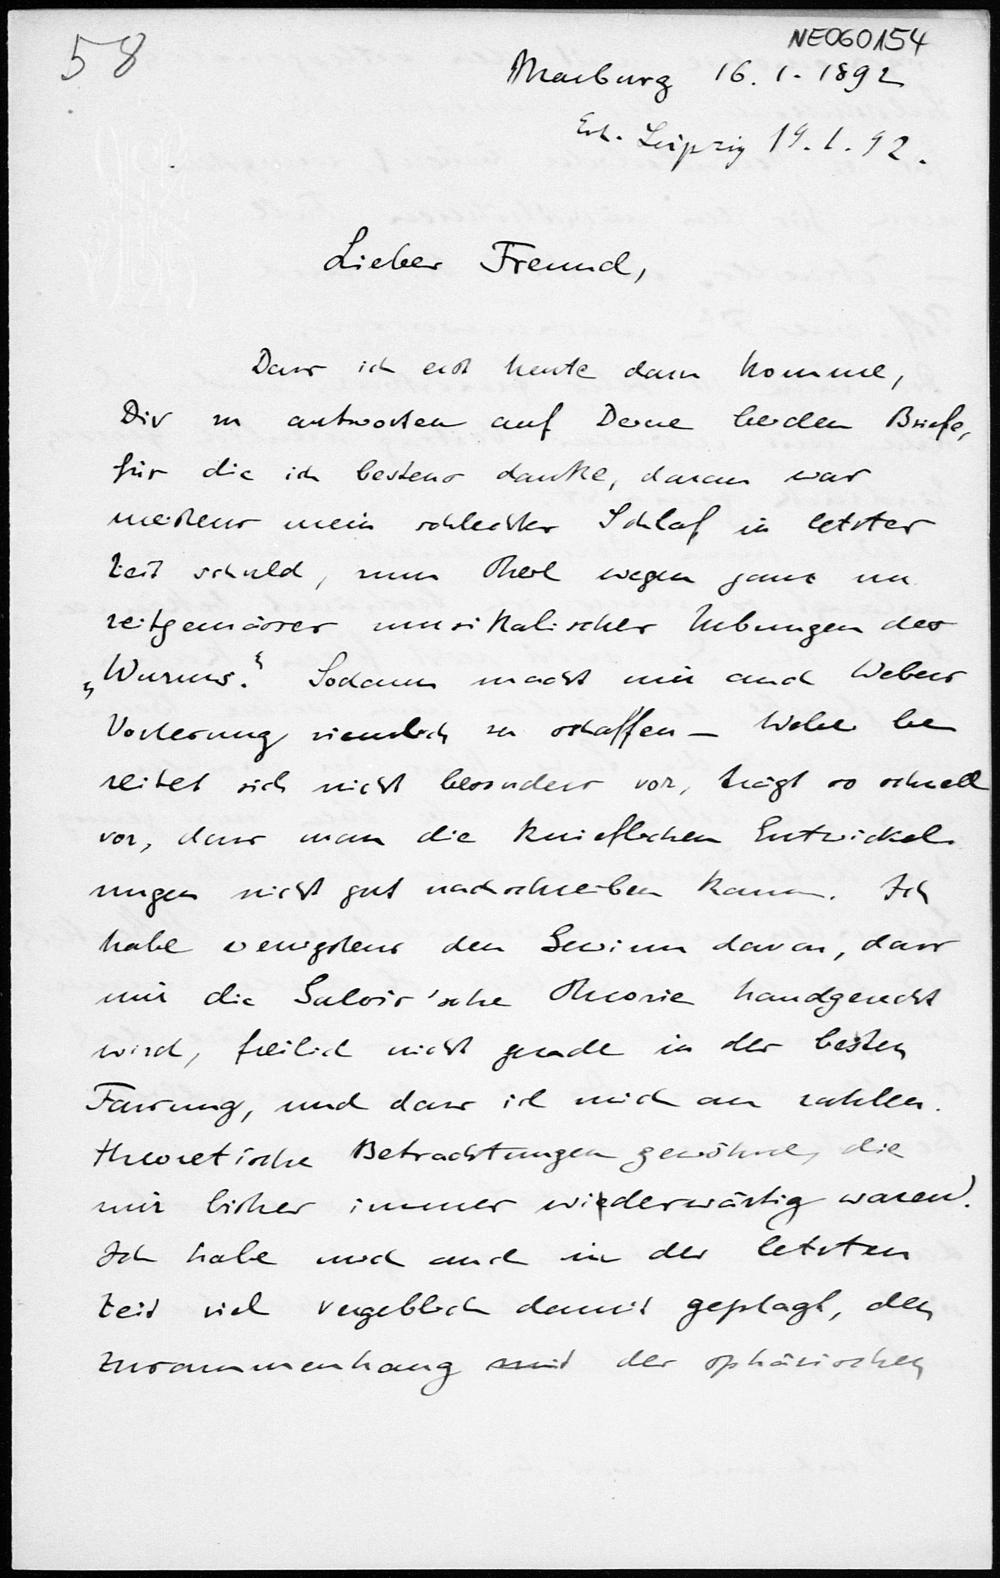 58
NE060154
Marburg 16. 1. 1892
Erh. Leipzig 19. 1. 92.
Lieber Freund,
Dass ich erst heute dazu komme,
Dir zu antworten auf Deine beiden Briefe,
für die ich bestens danke, daran war
meistens mein schlechter Schlaf in letzter
Zeit schuld, zum Theil wegen ganz un
zeitgemässer musikalischer Uebungen des
„Wurms“. Sodann macht mir auch Webers
Vorlesung ziemlich zu schaffen – Weber be
reitet sich nicht besonders vor, trägt so schnell
vor, dass man die kniefflichen Entwickel-
ungen nicht gut nachschreiben kann. Ich
habe wenigstens den Gewinn davon, dass
mir die Galois'sche Theorie handgerecht
wird, freilich nicht gerade in der besten
Fassung, und dass ich mich an zahlen-
theoretische Betrachtungen gewöhne, die
mir bisher immer wiederwärtig waren.
Ich habe mich auch in der letzten
Zeit viel vergeblich damit geplagt, den
Zusammenhang mit der sphärischen